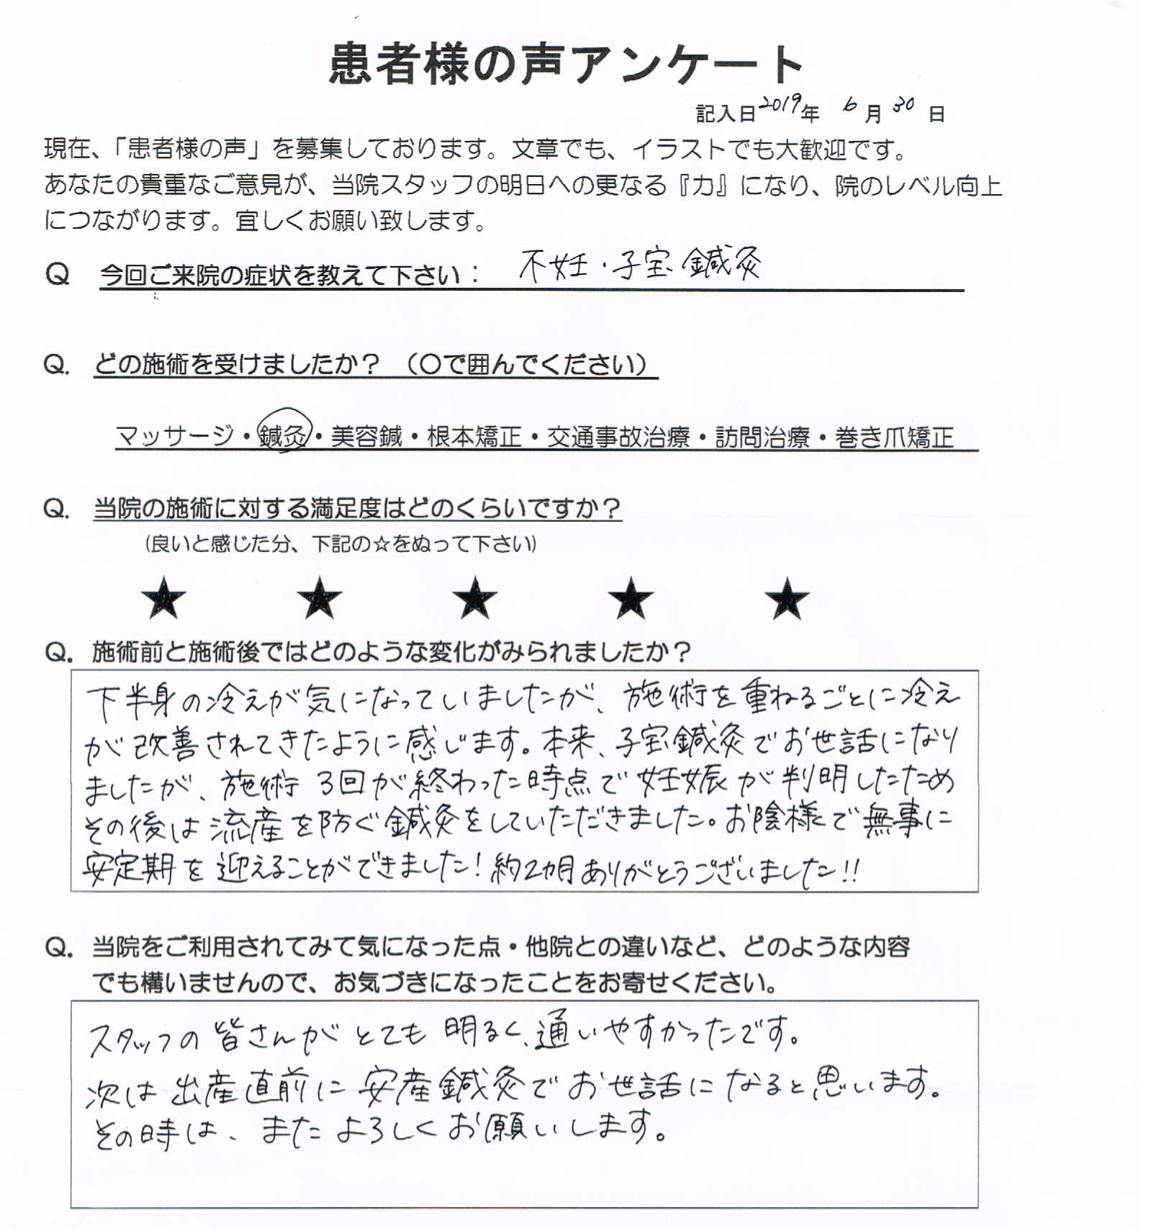 患者様の声アンケート
記入日2019年 6月30日
現在、「患者様の声」を募集しております。文章でも、イラストでも大歓迎です。
あなたの貴重なご意見が、当院スタッフの明日への更なる『力』になり、院のレベル向上
につながります。宜しくお願い致します。
Q 今回ご来院の症状を教えて下さい： 不妊・子宝鍼灸
Q. どの施術を受けましたか？ （〇で囲んでください）
マッサージ・鍼灸・美容鍼・根本矯正・交通事故治療・訪問治療・巻き爪矯正
Q. 当院の施術に対する満足度はどのくらいですか？
(良いと感じた分、下記の☆をぬって下さい)
★ ★ ★ ★ ★
Q. 施術前と施術後ではどのような変化がみられましたか？
下半身の冷えが気になっていましたが、施術を重ねるごとに冷え
が改善されてきたように感じます。本来、子宝鍼灸でお世話になり
ましたが、施術3回が終わった時点で妊娠が判明したため
その後は流産を防ぐ鍼灸をしていただきました。お陰様で無事に
安定期を迎えることができました！約2ヵ月ありがとうございました!!
Q. 当院をご利用されてみて気になった点・他院との違いなど、どのような内容
でも構いませんので、お気づきになったことをお寄せください。
スタッフの皆さんがとても明るく、通いやすかったです。
次は出産直前に安産鍼灸でお世話になると思います。
その時は、またよろしくお願いします。